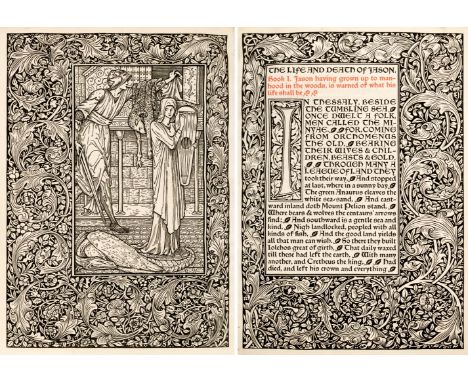 THE LIFE AND DEATH OF JASON.
Book I. Jason having grown up to man-
hood in the woods, is warned of what his
life shall be
IN THESSALY, BESIDE
THE TUMBLING SEA,
ONCE DWELT A FOLK,
MEN CALLED THE MI-
NYAE; FOR, COMING
FROM ORCHOMENUS
THE OLD, BEARING
THEIR WIVES & CHIL-
DREN, BEASTS & GOLD,
THROUGH MANY A
LEAGUE OF LAND THEY
took their way, And stopped
at last, where in a sunny bay,
The green Anaurus cleaves the
white sea-sand, And east-
ward inland doth Mount Pelion stand,
Where bears & wolves the centaurs' arrows
find; And southward is a gentle sea and
kind, Nigh landlocked, peopled with all
kinds of fish, And the good land yields
all that man can wish. So there they built
Iolchos great of girth, That daily waxed
till these had left the earth, With many
another, and Cretheus the king, Had
died, and left his crown and everything